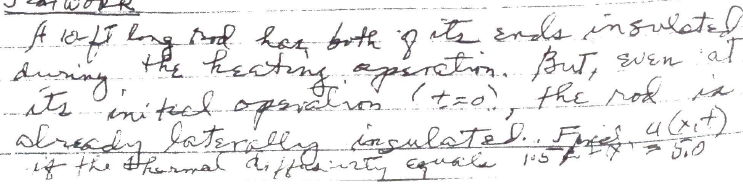 Seatwork
A 10-ft long rod has both of its ends insulated
during the heating operation. But, even at
its initial operation (t=0), the rod is
already laterally insulated. Find u(x,t)
if the thermal diffusivity equals 1.5